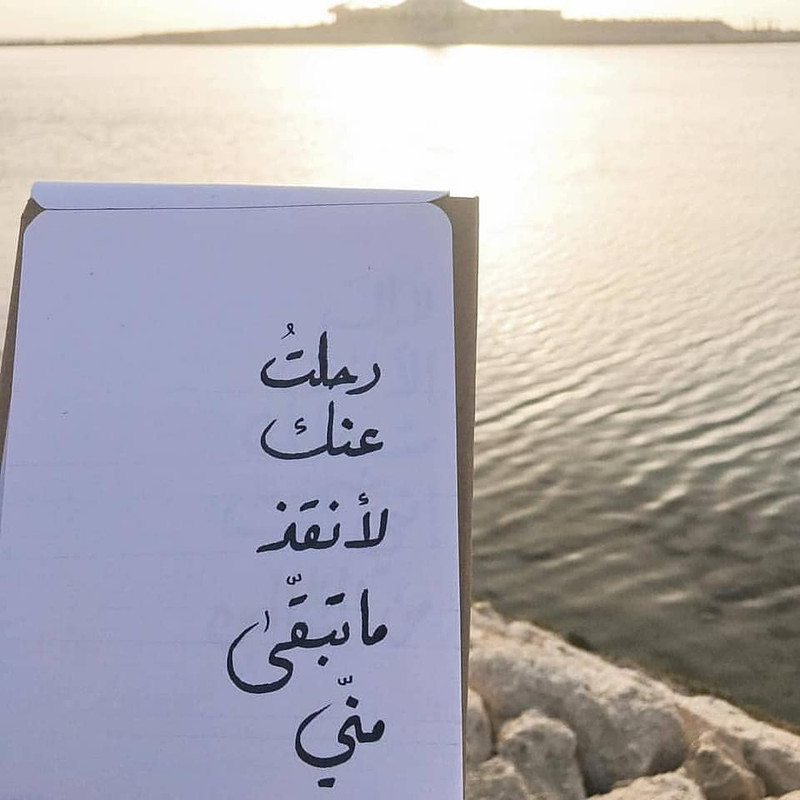 رحلتُ
عنك
لأنقذ
ماتبقّىٰ
منّي